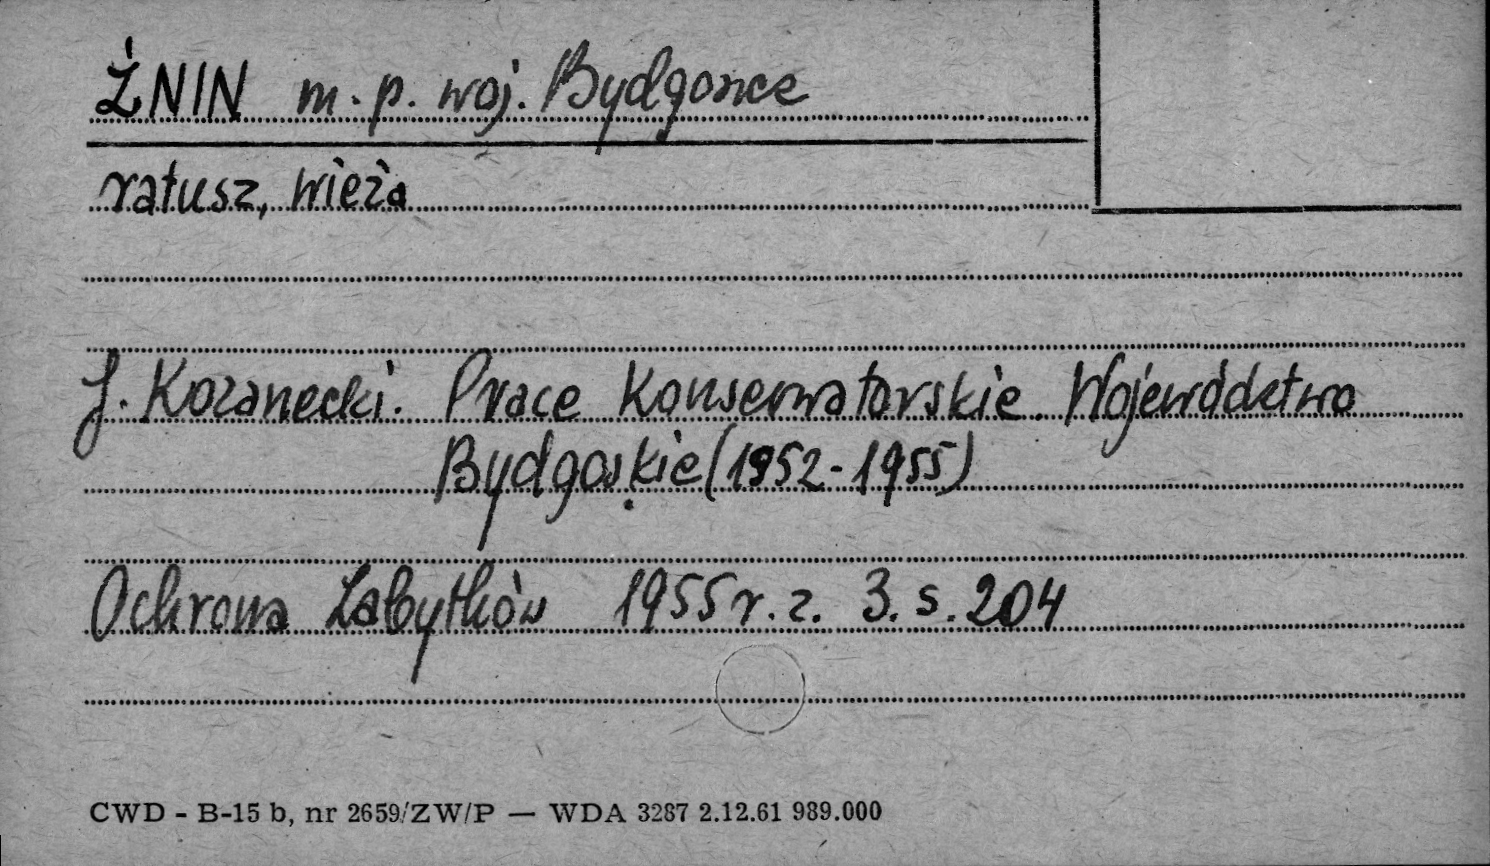 ŻNIN m. p. woj. Bydgoszcz
ratusz, wieża
J. Kozanecki. Prace Konserwatorskie. Województwo
Bydgoskie (1952-1955)
Ochrona Zabytków 1955 r. z. 3. s. 204
CWD - B-15 b, nr 2659/ZW/P — WDA 3287 2.12.61 989.000